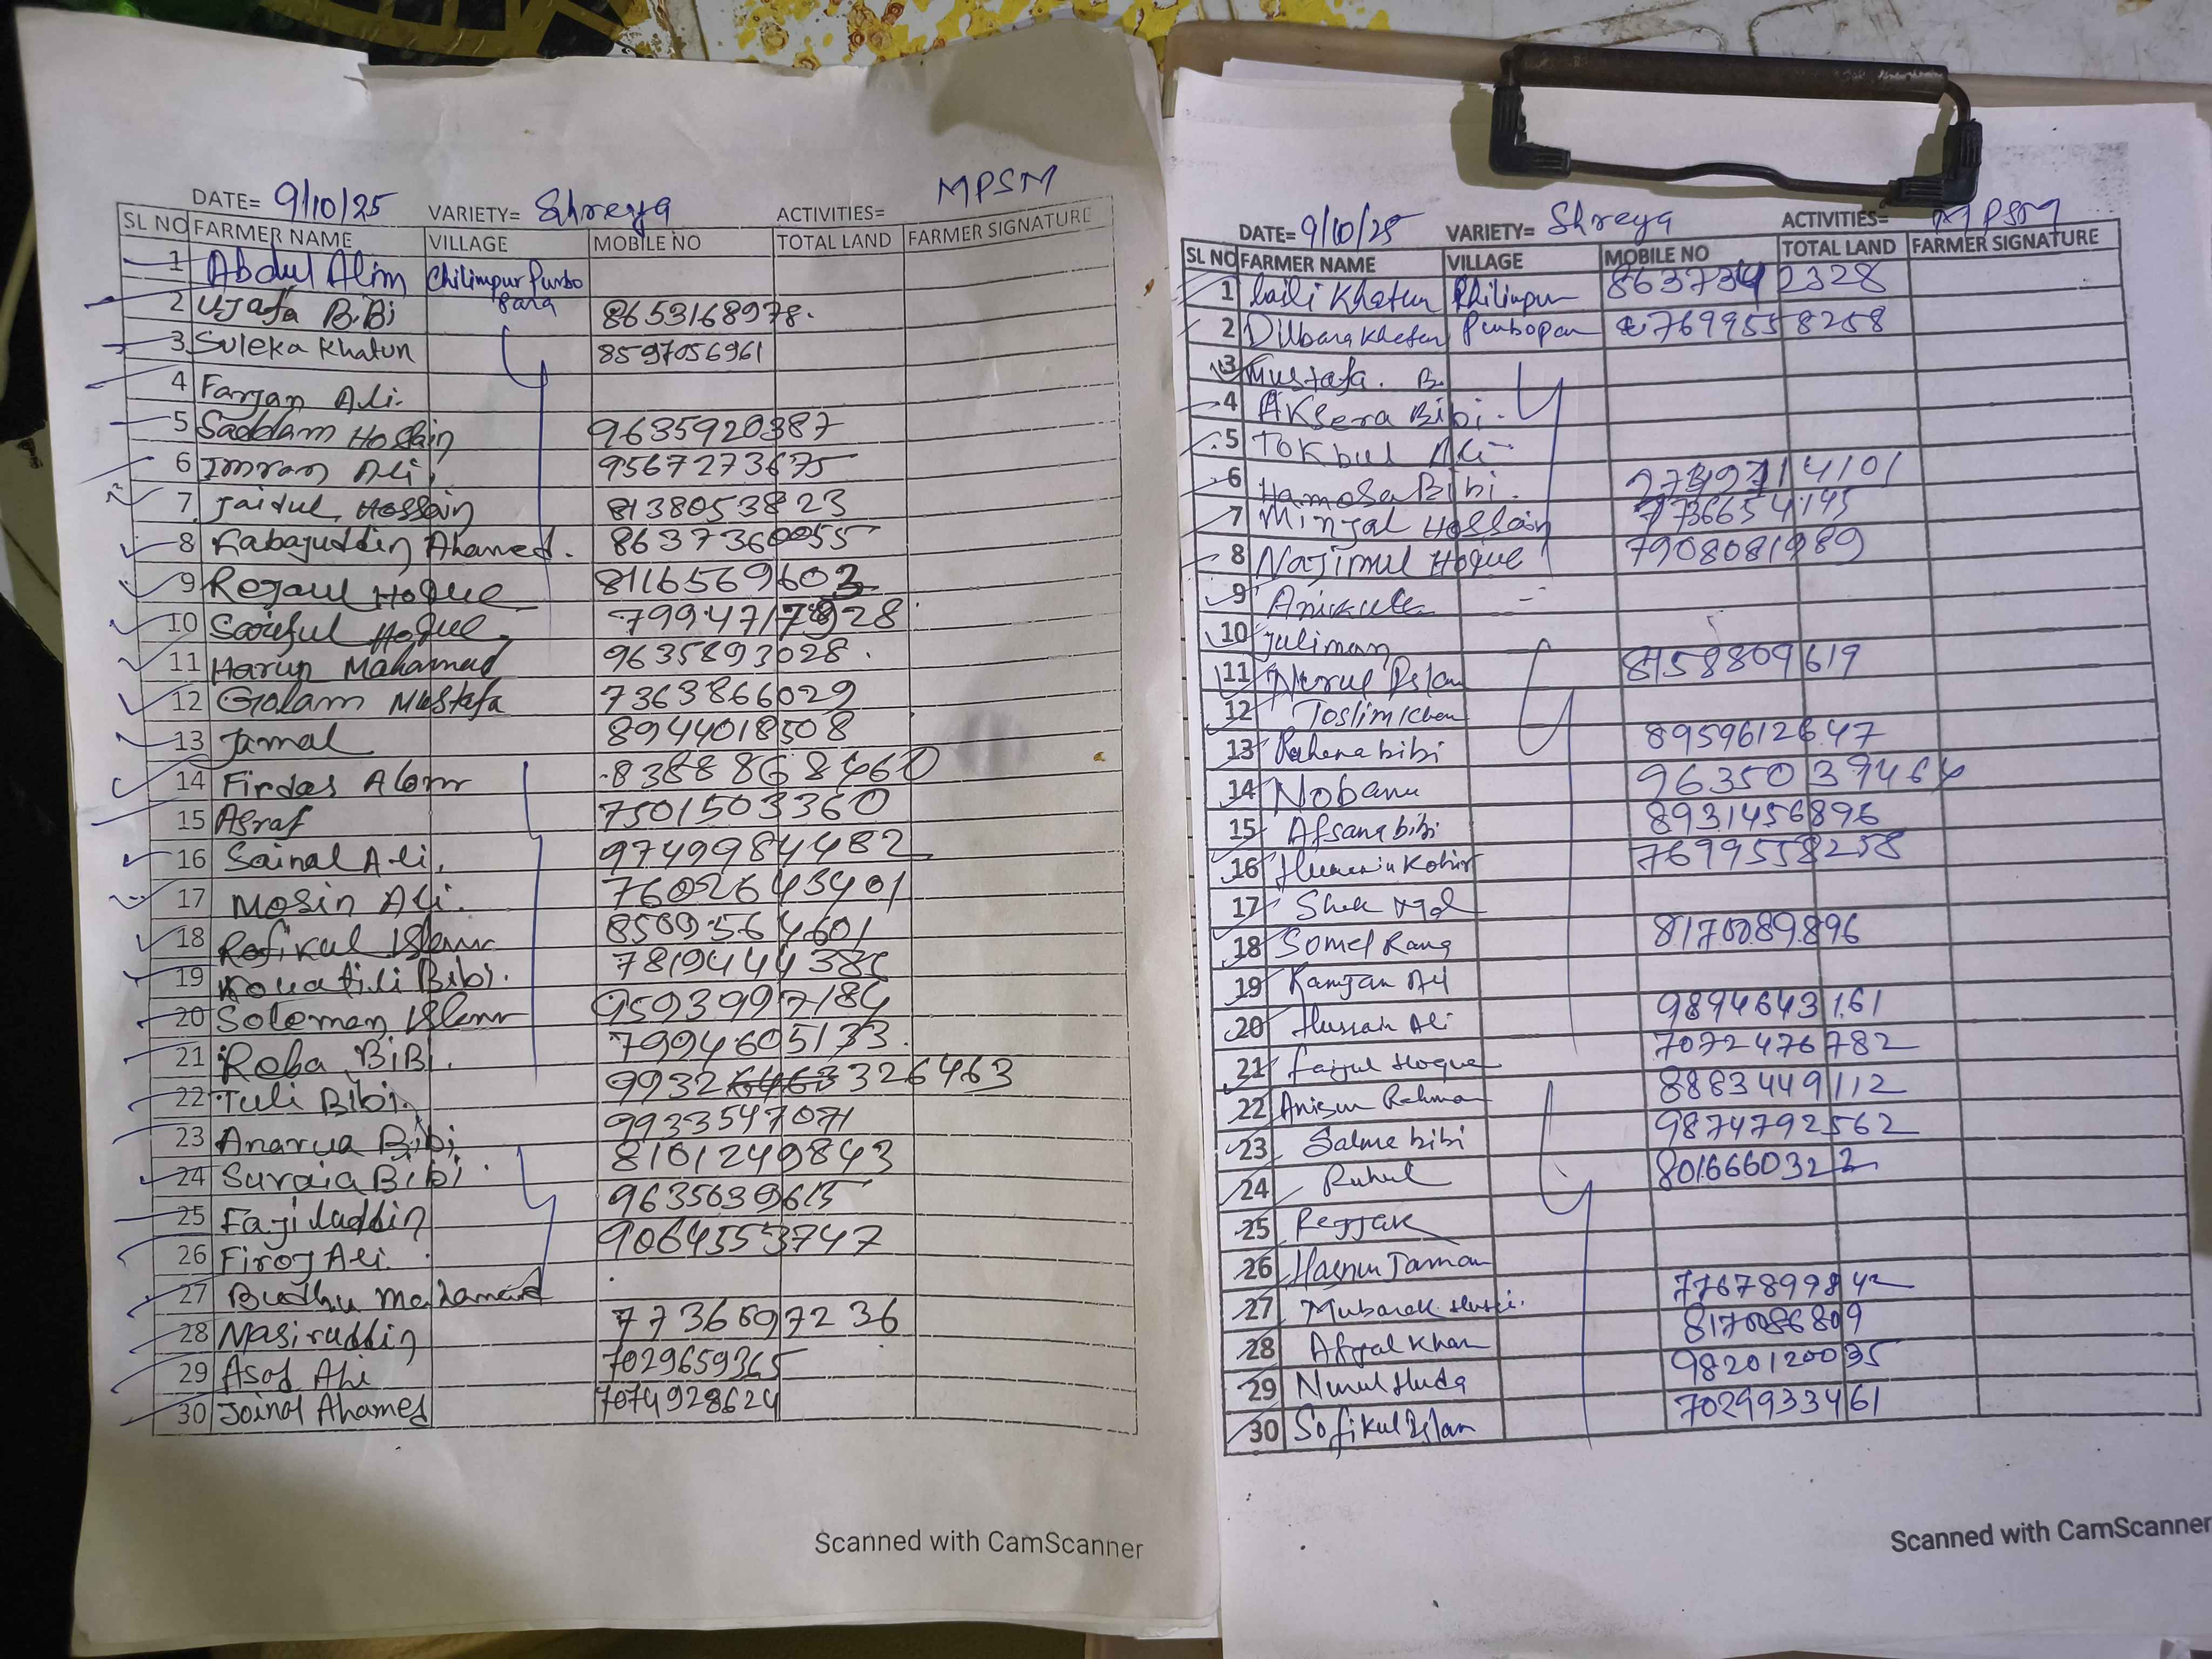 DATE= 9/10/25 VARIETY= Shreya ACTIVITIES= MPSM
SL NO FARMER NAME VILLAGE MOBILE NO TOTAL LAND FARMER SIGNATURE
1 Abdul Alim Chilimpur Purbo Para
2 Ujafa BiBi 8653168978.
3 Suleka Khatun 8597056961
4 Farjan Ali.
5 Saddam Hossain 9635920387
6 Imran Ali, 9567273675
7 Jaidul Hossain 8138053823
8 Kabajuddin Ahamed. 8637360055
9 Rejaul Hoque 8116569603
10 Sariful Hoque,
11 Harun Mahamad 9635893028.
12 Golam Mustafa 7363866029
13 Jamal 8944018508
14 Firdas Alom 8388868460
15 Asraf 7501503360
16 Sainal Ali, 9749984482
17 Mosin Ali. 7602643401
18 Rofikul Islam 8509564601
19 Bibi.
20 Soleman Islam 9593997184
21 Roba BiBi. 7994605133.
22 Tuli Bibi. 99326463326463
23 Anarua Bibi 9933547071
24 Suraia Bibi. 8101249843
25 Fajiluddin 9635639615
26 Firoj Ali. 9064553747
27 Budhu Mahamad
28 Nasiruddin 7736697236
29 Asad Ali 7029659365
30 Joinal Ahamed 7074928624
Scanned with CamScanner
DATE= 9/10/25 VARIETY= Shreya ACTIVITIES= MPSM
SL NO FARMER NAME VILLAGE MOBILE NO TOTAL LAND FARMER SIGNATURE
1 Laili Khatun Chilimpur
2 Dilbara Khatun Purbopara 7699558258
3 Mustafa. B.
4 AKsera Bibi.
5 TOKbul Ali
6 Hamosa Bibi.
7 Minjal Hossain 7736654145
8 Najimul Hoque 7908081989
9
10 Juliman
11 Nurul Islam 8158809619
12 Toslim Khan
13 Rahena bibi 8959612647
14 Nobanu 96350397464
15 Afsana bibi 8931456896
16 Humaiu Kobir 7699558258
17 Shek Md
18 Somel Rana 8170089896
19 Ramjan Ali
20 Hussain Ali 9894643161
21 Faijul Hoque 7072476782
22 Anisur Rahman 8883449112
23 Salma bibi 9874792562
24 Ruhul 8016660322
25 Rejjak
26 Hasnu Jaman
27 Mubarak 7767899842
28 Afjal Khan 8170086809
29 Nurul Huda 9820120035
30 Sofikul Islam 7029933461
Scanned with CamScanner